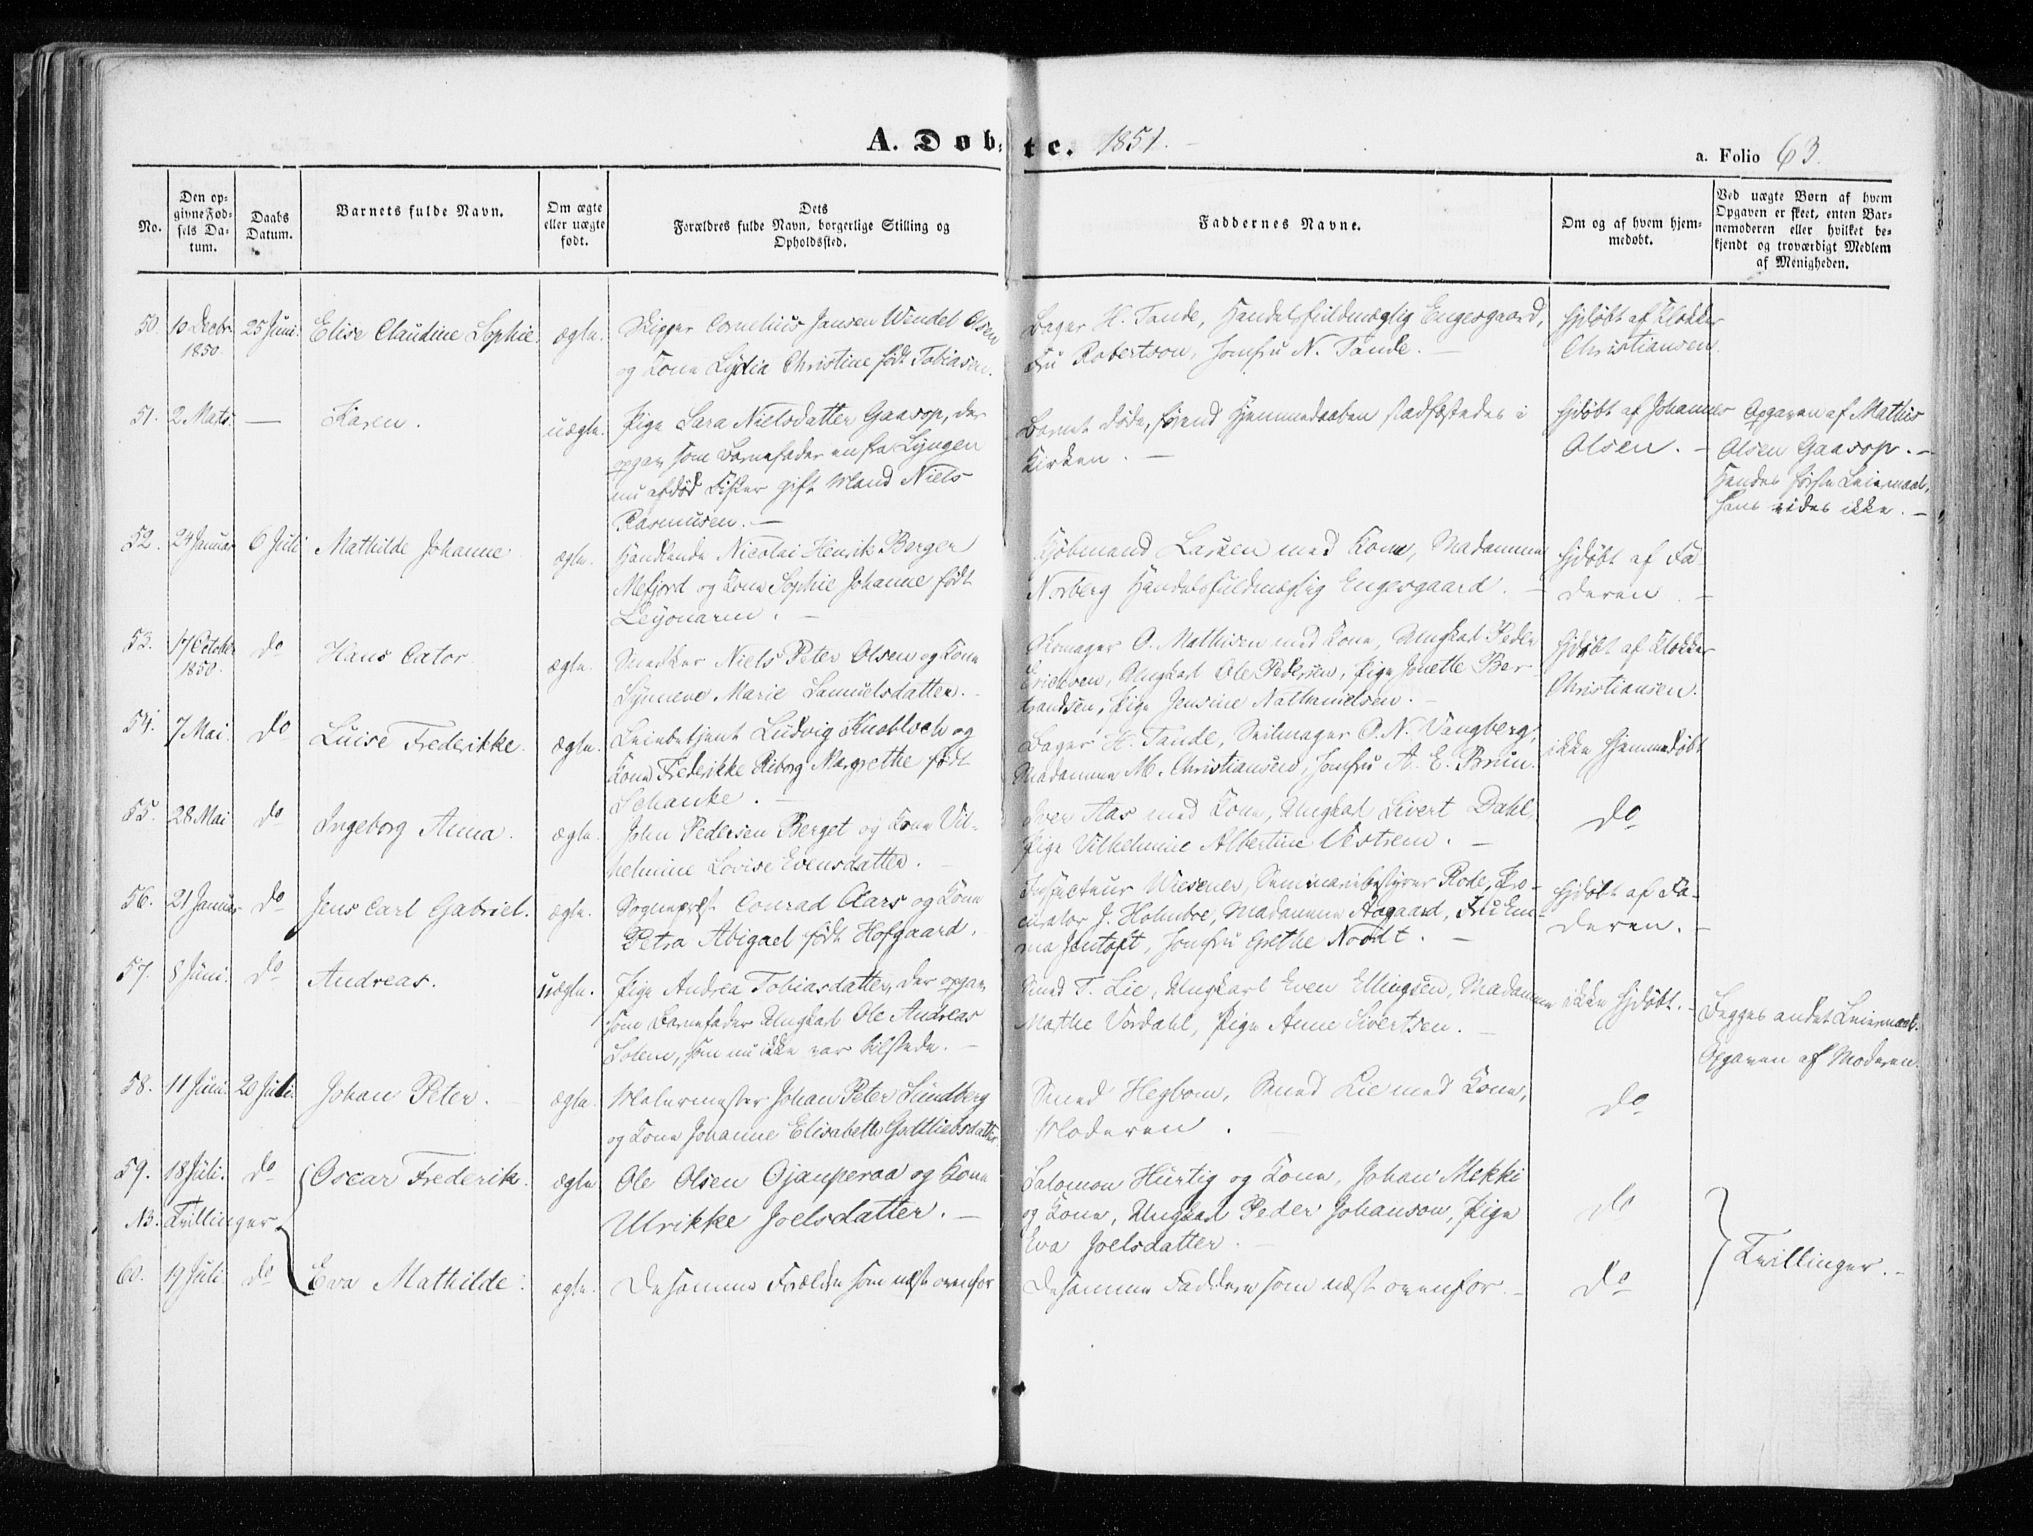 A. Døbte. 1851.
a. Folio 63.
No.
Den opgivne Fødsels Datum.
Daabs Datum.
Barnets fulde Navn.
Om ægte eller uægte født.
Dets Forældres fulde Navn, borgerlige Stilling og Opholdssted.
Faddernes Navne.
Om og af hvem hjemmedøbt.
Ved uægte Børn af hvem Opgaven er skeet, enten Barnemoderen eller hvilket bekjendt og troværdigt Medlem af Menigheden.
50. 10 Decbr. 1850. 25 Juni. Elise Claudine Sophie. ægte.
Skipper Cornelius Jansen Wendel Olsen
og Kone Lydia Christine født Tobiasen.
Bager H. Tande, Handelsfuldmægtig Engesgaard,
Fru Robertson, Jomfru N. Tande. —
Hjdøbt af Klokker
Christiansen.
51. 2 Mats. — Karen. uægte.
Pige Sara Nielsdatter Gaasop, der
opgav som Barnefader en fra Lyngen
nu afdød Fisker gift Mand Niels
Rasmusen. —
Barnet døde, førend Hjemmedaaben stadfæstedes i
Kirken. —
Hjdøbt af Johannes
Olsen. —
Opgaven af Mathis
Olsen Gaasop. —
Hendes første Leiermaal,
hans vides ikke. —
52. 24 Januar 6 Juli Mathilde Johanne ægte.
Handlende Nicolai Henrik Berger
Mefjord og Kone Sophie Johanne født
Leyonarm. —
Kjøbmand Larsen med Kone, Madamme
Norberg Handelsfuldmægtig Engesgaard. —
Hjdøbt af Fa
deren. —
53. 17 October 1850. do Hans Cator ægte.
Snedker Niels Peter Olsen og Kone
Synneve Marie Samuelsdatter. —
Skomager O. Mathisen med Kone, Ungkarl Peder
Erichsen, Ungkarl Ole Pedersen, Pige Jonette Ber-
trandsen, Pige Jensine Nathanielsen. —
Hjdøbt af Klokker
Christiansen.
54. 7 Mai. do Luise Frederikke. ægte.
Leiebetjent Ludvig Knobloch og
Kone Frederikke Riborg Margrethe født
Schanke. —
Bager H. Tande, Seilmager O. N. Vangberg,
Madamme M. Christiansen, Jomfru A. E. Brun.
ikke hjemmedøbt
55. 28 Mai do Ingeborg Anna. ægte.
John Pedersen Berget og Kone Vil-
helmine Lovise Evensdatter. —
Iver Aas med Kone, Ungkarl Sivert Dahl,
Pige Vilhelmine Albertine Vestrem. —
do
56. 21 Januar do Jens Carl Gabriel. ægte.
Sognepræst Conrad Aars og Kone
Petra Abigael født Hofgaard.
Inspecteur Wiesener, Seminariebestyrer Rode, Pro-
curator J. Holmboe, Madamme Aagaard, Fru Em-
ma Jentoft, Jomfru Grethe Noodt. —
Hjdøbt af Fa-
deren. —
57. 8 Juni. do Andreas. uægte.
Pige Andrea Tobiasdatter, der opgav
som Barnefader Ungkarl Ole Andreas
Solem, som nu ikke var tilstede. —
Smed T. Lie, Ungkarl Even Ellingsen, Madamme
Mathe Vordahl, Pige Anne Sivertsen. —
ikke hjdøbt. —
Begges andet Leiermaal.
Opgaven af Moderen.
58. 11 Juni. 20 Juli. Johan Peter. ægte.
Malermester Johan Peter Lundberg
og Kone Johanne Elisabeth Gottliebsdatter.
Smed Hegbom, Smed Lie med Kone,
Moderen. —
do
59. 18 Juli. do Oscar Frederik. ægte
Ole Olsen Ojanperaa og Kone
Ulrikke Joelsdatter. —
Salomon Hurtig og Kone, Johan Mekki
og Kone, Ungkarl Peder Johanson, Pige
Eva Joelsdatter. —
do
NB. Tvillinger.
Tvillinger. —
60. 19 Juli. do Eva Mathilde. ægte.
De samme Forældre som næst ovenfor
De samme Faddere som næst ovenfor. —
do